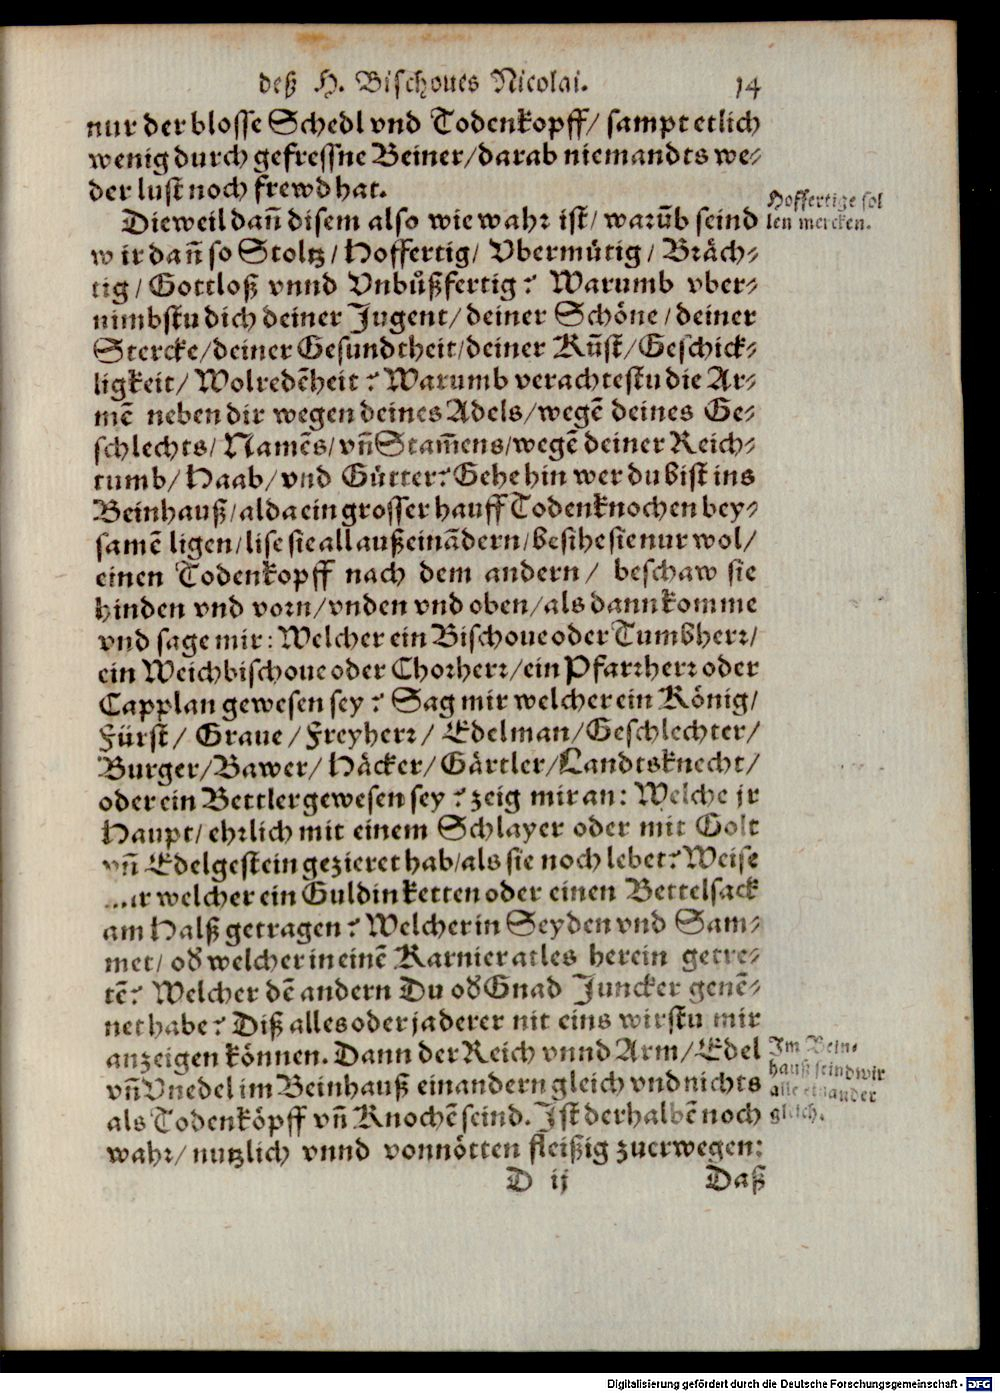 deß H. Bischoues Nicolai. 14
nur der blosse Schedl vnd Todenkopff/ sampt etlich
wenig durch gefressne Beiner/darab niemandts we⸗
der lust noch frewd hat.
Dieweil dañ disem also wie wahr ist/ warũb seind
Hoffertige sol
len mercken.
wir dañ so Stoltz/ Hoffertig/ Vbermütig/ Bräch⸗
tig/ Gottloß vnnd Vnbůßfertig? Warumb vber⸗
nimbstu dich deiner Jugent/ deiner Schöne/ deiner
Stercke/deiner Gesundtheit/deiner Kũst/Geschick⸗
ligkeit/ Wolredẽheit? Warumb verachtestu die Ar⸗
mẽ neben dir wegen deines Adels/wegẽ deines Ge⸗
schlechts/ Namẽs/ vñ Stam̃ens/wegẽ deiner Reich⸗
tumb/ Haab/ vnd Gütter? Gehe hin wer du bist ins
Beinhauß/alda ein grosser hauff Todenknochen bey⸗
samẽ ligen/lise sie all außeinãdern/besihe sie nur wol/
einen Todenkopff nach dem andern/ beschaw sie
hinden vnd vorn/vnden vnd oben/als dann komme
vnd sage mir: Welcher ein Bischoue oder Tumbherr/
ein Weichbischoue oder Chorherr/ein Pfarrherr oder
Capplan gewesen sey? Sag mir welcher ein König/
Fürst/ Graue/Freyherr/ Edelman/Geschlechter/
Burger/Bawer/ Häcker/ Gärtler/Landtsknecht/
oder ein Bettler gewesen sey? zeig mir an: Welche jr
Haupt/ ehrlich mit einem Schlayer oder mit Golt
vñ Edelgestein gezieret hab/als sie noch lebet? Weise
welcher ein Guldin ketten oder einen Bettelsack
am Halß getragen? Welcher in Seyden vnd Sam⸗
met/ oď welcher in einẽ Karnier atles herein getre⸗
tẽ? Welcher dẽ andern Du oď Gnad Juncker genẽ⸗
net habe? Diß alles oder ja derer nit eins wirstu mir
anzeigen können. Dann der Reich vnnd Arm/ Edel
vñ Vnedel im Beinhauß einandern gleich vnd nichts
als Todenköpff vñ Knochẽ seind. Ist derhalbẽ noch
Im Bein⸗
hauß seind wir
alle einander
gleich.
wahr/ nutzlich vnnd vonnötten fleißig zuerwegen:
D ij Daß
Digitalisierung gefördert durch die Deutsche Forschungsgemeinschaft - DFG